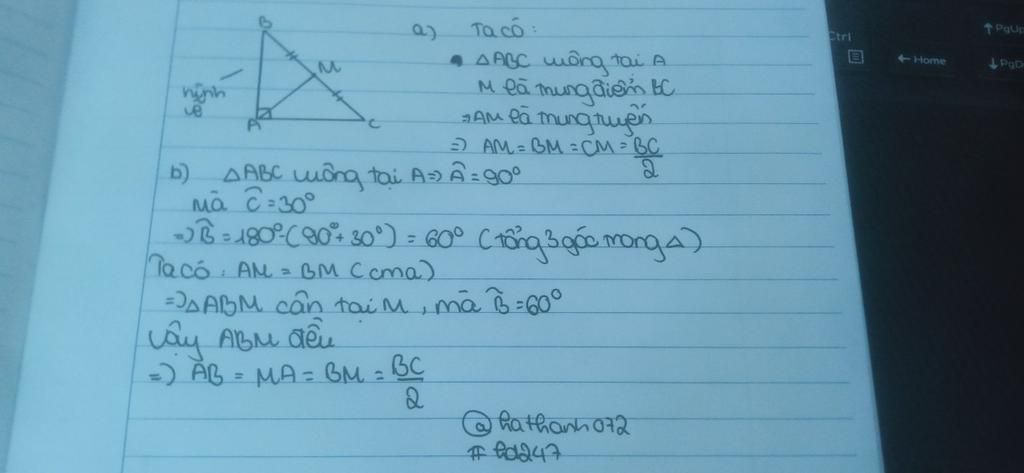 a) Ta có:
B
M
A
C
hình
vẽ
• △ABC vuông tại A
M là trung điểm BC
⇒ AM là trung tuyến
⇒ AM = BM = CM = BC/2
b) △ABC vuông tại A ⇒ Â = 90°
mà Ĉ = 30°
⇒ B̂ = 180° - (90° + 30°) = 60° (tổng 3 góc trong △)
Ta có: AM = BM (cma)
⇒ △ABM cân tại M, mà B̂ = 60°
Vậy ABM đều
⇒ AB = MA = BM = BC/2
@hathanh072
#hd247
Ctrl
← Home
↑ PgUp
↓ PgD